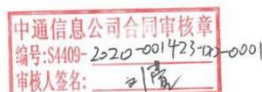 中通信息公司合同审核章
编号:S4409-2020-001423-122-0001
审核人签名: